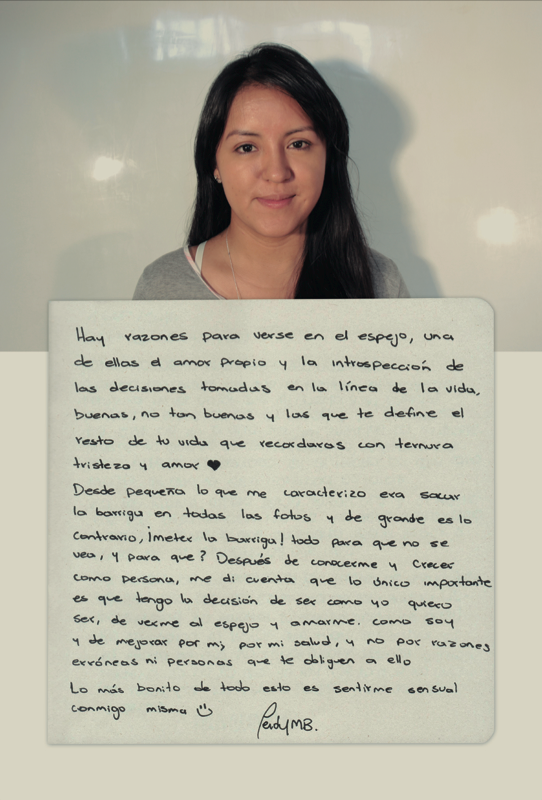 Hay razones para verse en el espejo, una
de ellas el amor propio y la introspección de
las decisiones tomadas en la línea de la vida,
buenas, no tan buenas y las que te define el
resto de tu vida que recordaras con ternura
tristeza y amor ♥
Desde pequeña lo que me caracterizo era sacar
la barriga en todas las fotos y de grande es lo
contrario, ¡meter la barriga! todo para que no se
vea, y para que? Después de conocerme y crecer
como persona, me di cuenta que lo único importante
es que tengo la decisión de ser como yo quiero
ser, de verme al espejo y amarme. como soy
y de mejorar por mi, por mi salud, y no por razones
erróneas ni personas que te obliguen a ello
Lo más bonito de todo esto es sentirme sensual
conmigo misma :)
MB.